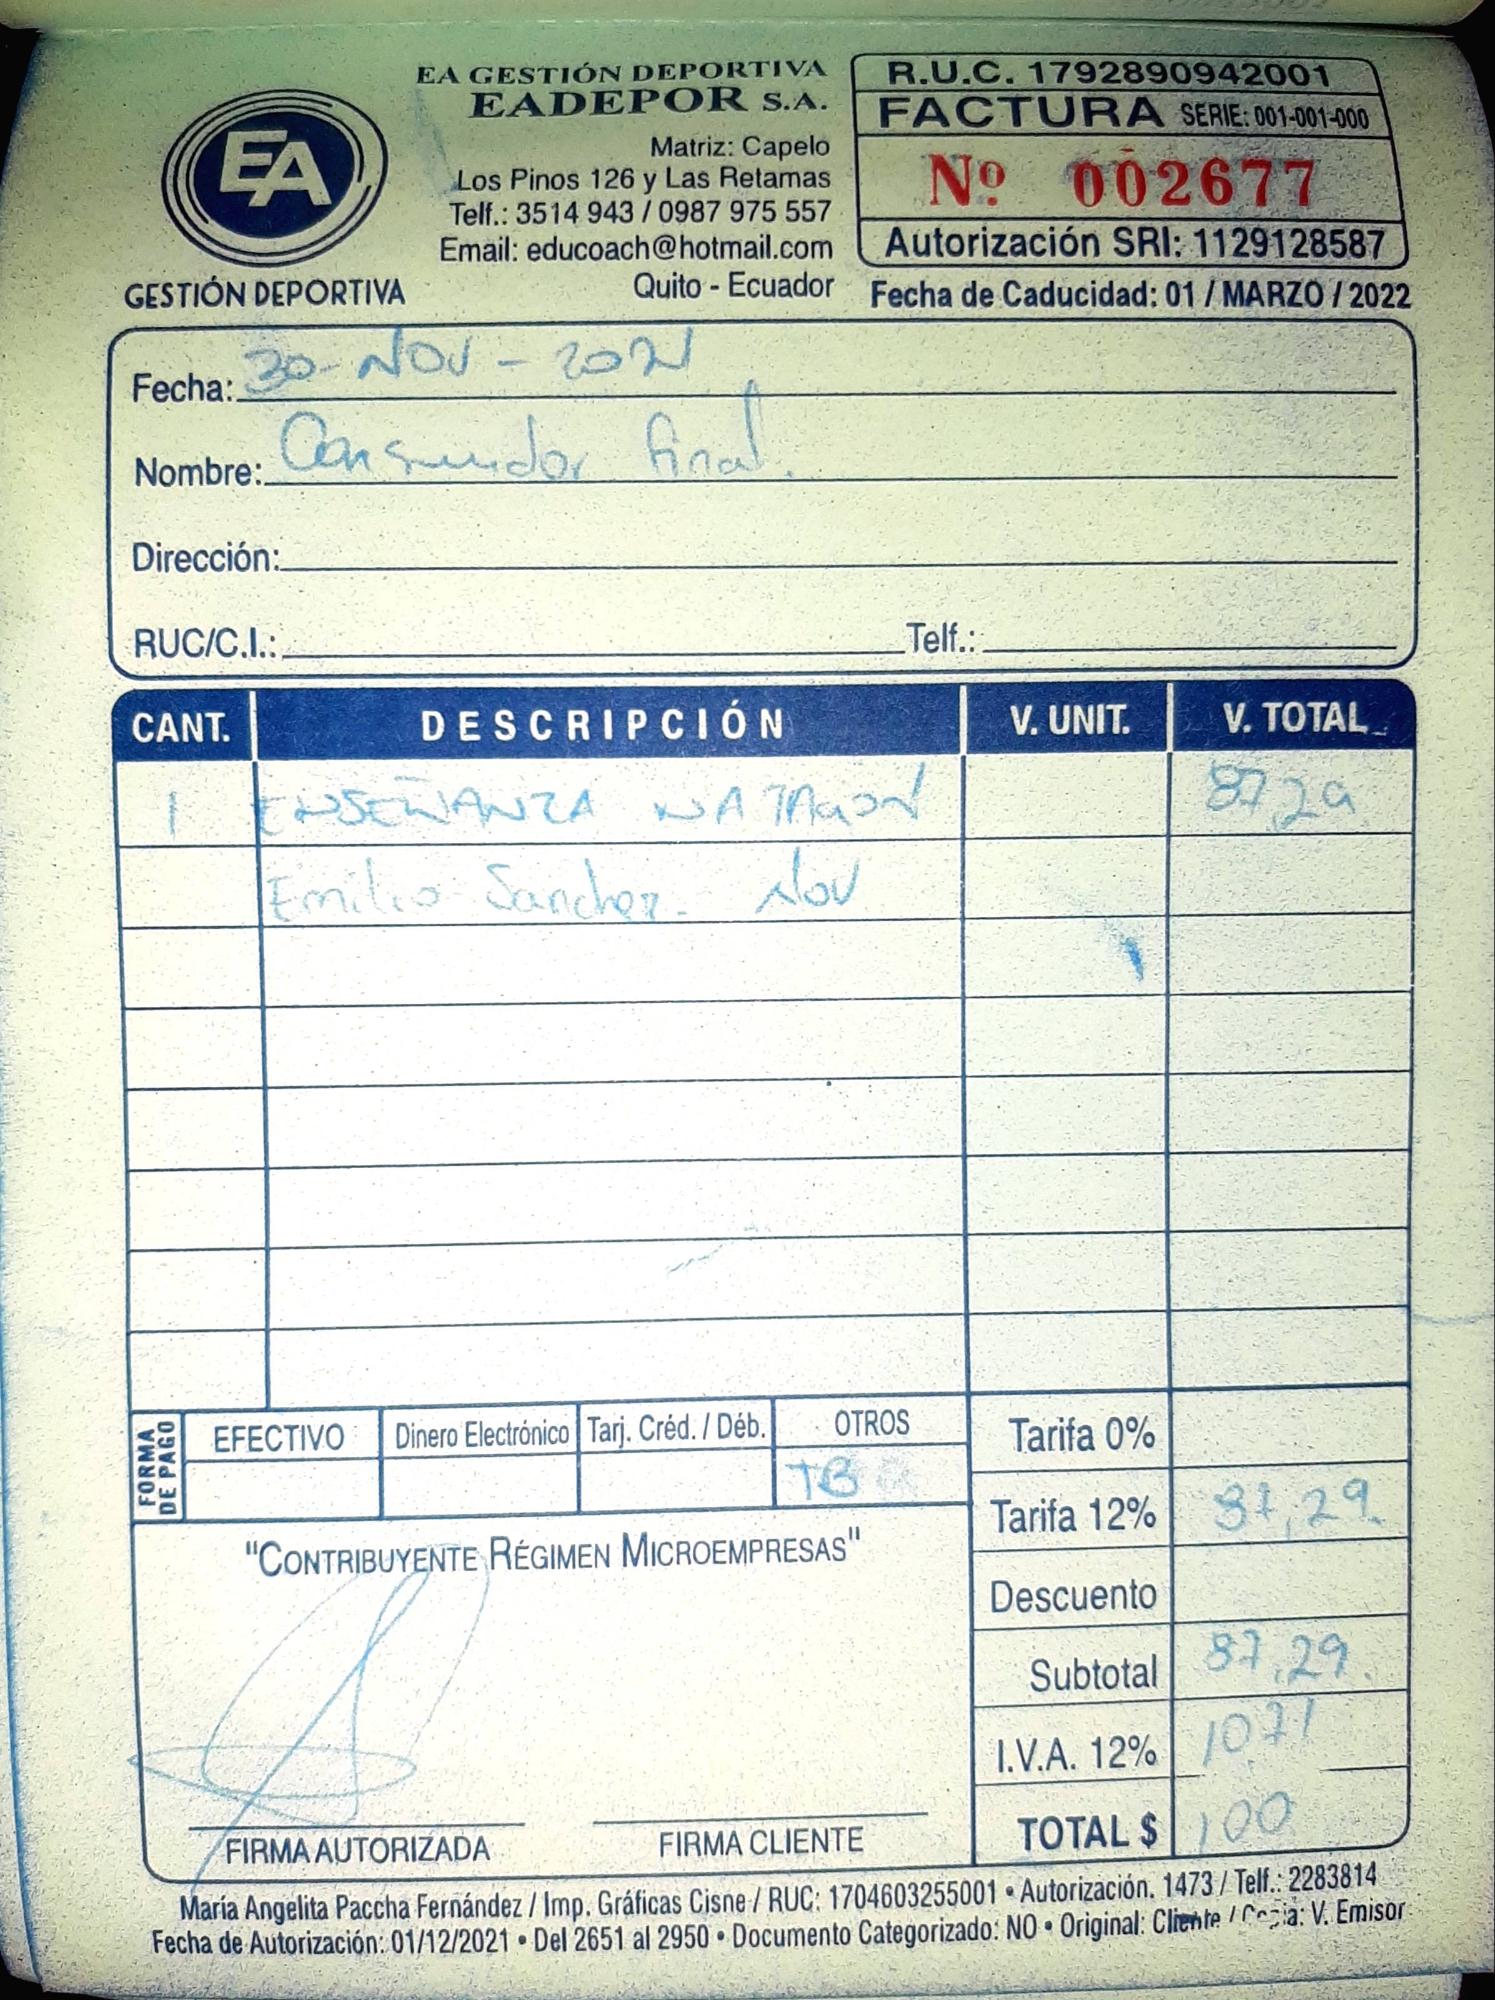 EA GESTIÓN DEPORTIVA
EADEPOR S.A.
Matriz: Capelo
Los Pinos 126 y Las Retamas
Telf.: 3514 943 / 0987 975 557
Email: educoach@hotmail.com
Quito - Ecuador
EA
GESTIÓN DEPORTIVA
R.U.C. 1792890942001
FACTURA SERIE: 001-001-000
Nº 002677
Autorización SRI: 1129128587
Fecha de Caducidad: 01 / MARZO / 2022
Fecha: 30-NOV-2021
Nombre: Consumidor final.
Dirección:
RUC/C.I.: Telf.:
CANT. DESCRIPCIÓN V. UNIT. V. TOTAL
1 ENSEÑANZA NATACION 87,29
Emilio Sanchez. Nov
FORMA DE PAGO
EFECTIVO Dinero Electrónico Tarj. Créd. / Déb. OTROS
TB
Tarifa 0%
Tarifa 12% 87,29.
Descuento
Subtotal 87,29.
I.V.A. 12% 1071
TOTAL $ 100
"CONTRIBUYENTE RÉGIMEN MICROEMPRESAS"
FIRMA AUTORIZADA FIRMA CLIENTE
María Angelita Paccha Fernández / Imp. Gráficas Cisne / RUC: 1704603255001 • Autorización. 1473 / Telf.: 2283814
Fecha de Autorización: 01/12/2021 • Del 2651 al 2950 • Documento Categorizado: NO • Original: Cliente / Copia: V. Emisor